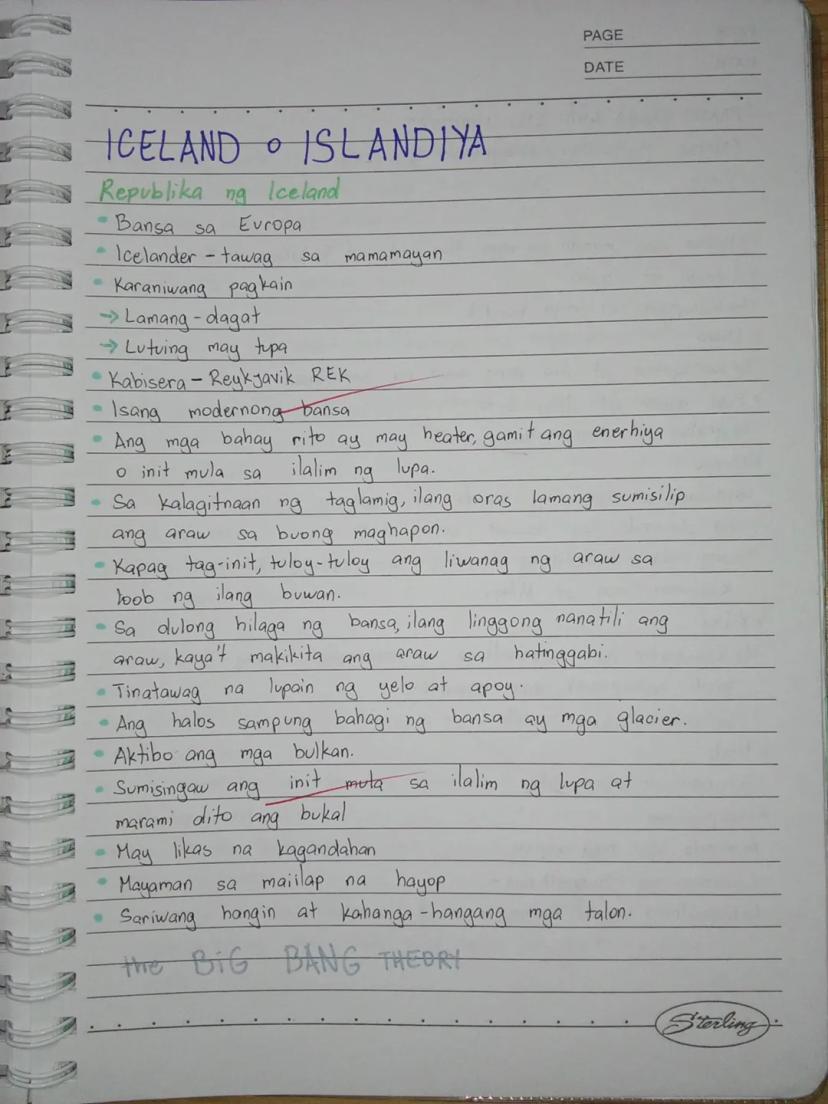 PAGE
DATE
ICELAND o ISLANDIYA
Republika ng Iceland
• Bansa sa Europa
• Icelander - tawag sa mamamayan
• Karaniwang pagkain
→ Lamang-dagat
→ Lutuing may tupa
• Kabisera - Reykjavik REK
• Isang modernong bansa
• Ang mga bahay rito ay may heater, gamit ang enerhiya
o init mula sa ilalim ng lupa.
• Sa kalagitnaan ng taglamig, ilang oras lamang sumisilip
ang araw sa buong maghapon.
• Kapag tag-init, tuloy-tuloy ang liwanag ng araw sa
loob ng ilang buwan.
• Sa dulong hilaga ng bansa, ilang linggong nanatili ang
araw, kaya't makikita ang araw sa hatinggabi.
• Tinatawag na lupain ng yelo at apoy.
• Ang halos sampung bahagi ng bansa ay mga glacier.
• Aktibo ang mga bulkan.
• Sumisingaw ang init mula sa ilalim ng lupa at
marami dito ang bukal
• May likas na kagandahan
• Mayaman sa maiilap na hayop
• Sariwang hangin at kahanga-hangang mga talon.
the BiG BANG THEORY
Sterling